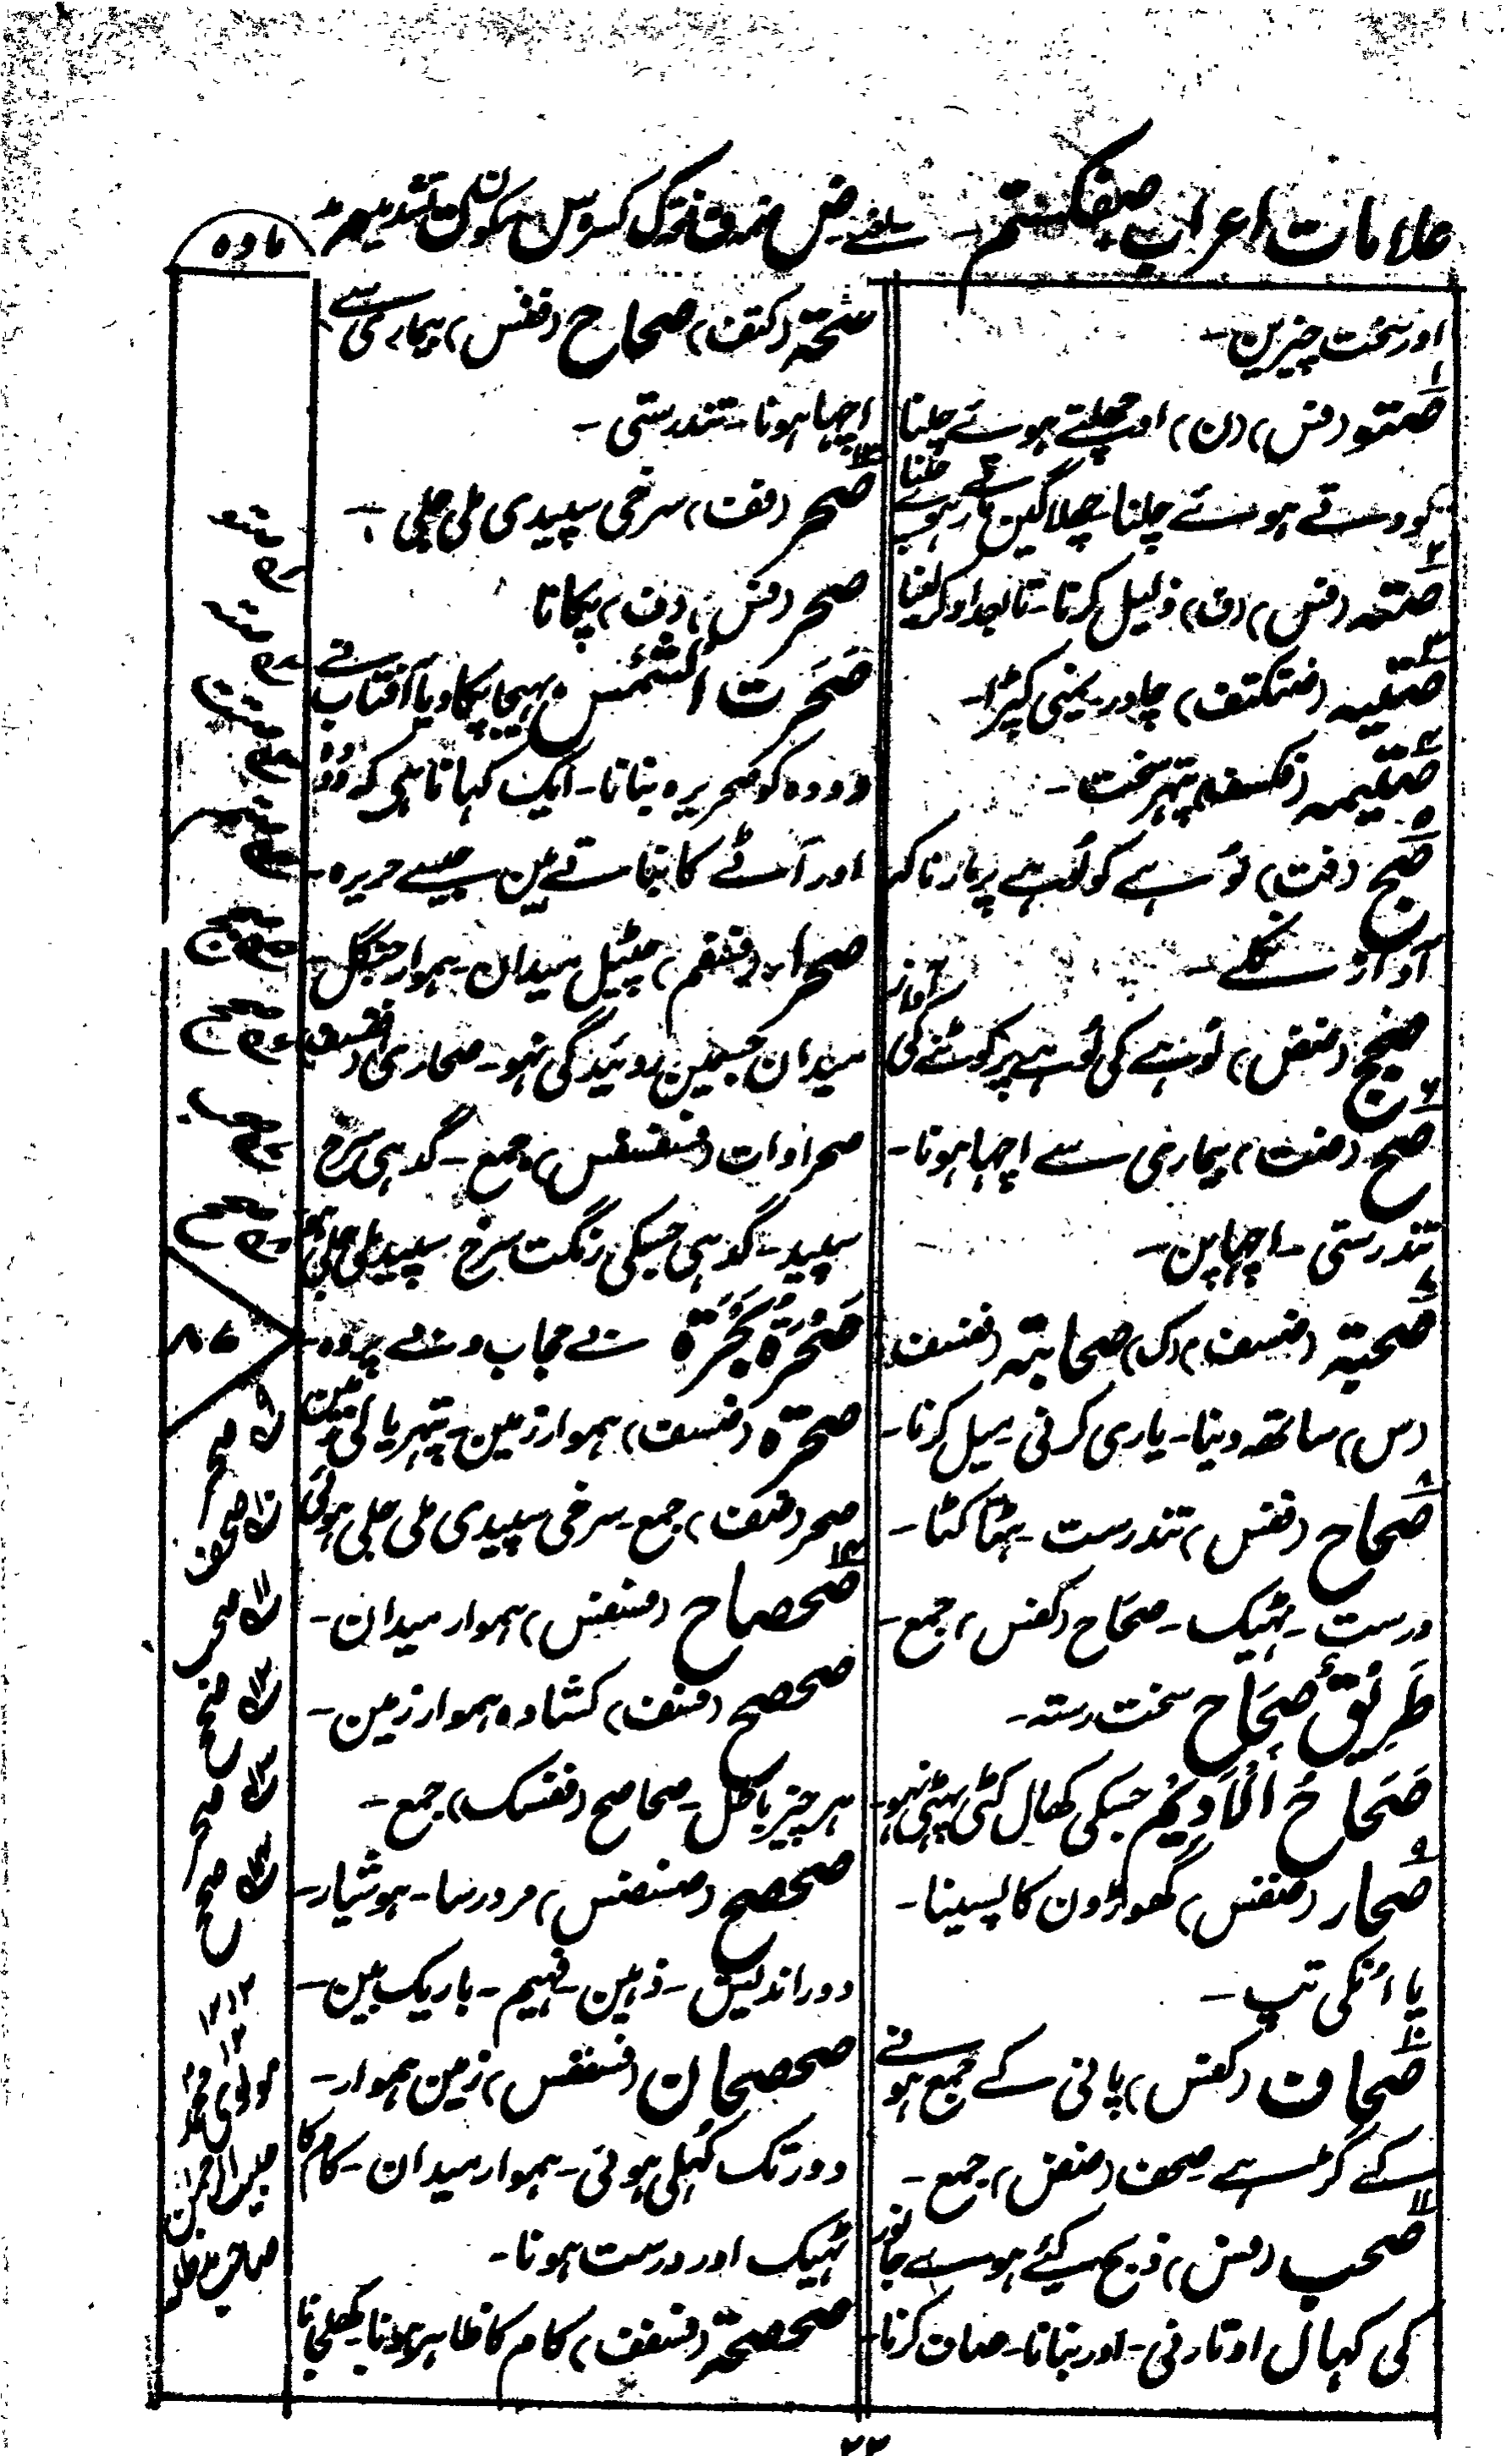 علامات اعراب صفحہ ہشتم
مادہ
اور سخت چیزین -
۱ صتو (فس) (ن) اوچھلتے ہوئے چلنا
کودتے ہوئے چلنا چھلانگین مارتے ہوئے چلنا
۲ صتہ (فس) (ف) ذلیل کرنا - تابعدار کرلینا
۳ صتیہ چادر - یمنی کپڑا -
۴ صتیمہ پتہر سخت -
۵ صج (فت) لوہے کو لوہے پر مارنا کہ
آواز نکلے -
صجج (ضفض) لوہے کی لوہے پر کوٹنے کی آواز
۶ صح (ضت) بیماری سے اچہا ہونا -
تندرستی - اچہاپن -
۷ صحبتہ (ضسف) (ک) صحابتہ (ففسف)
(س) ساتھہ دینا - یاری کرنی - میل کرنا -
۸ صحاح (ففس) تندرست - ہٹا کٹا -
درست - ٹہیک - صحاح (کفس) جمع -
طَرِیْقٌ صَحَاحٌ سخت رستہ -
صَحَاحُ الْاَدِیْمِ جسکی کھال کٹی پہٹی نہو -
۹ صحار (ضفس) گھوڑون کا پسینا -
یا اُنکی تپ -
۱۰ صحاف (کفس) پانی کے جمع ہونے
کے گڑہے صحف (ضض) جمع -
۱۱ صحب (فس) ذبح کئے ہوے جانور
کی کہال اوتارنی - اور بنانا - صاف کرنا -
صحتہ (کتف) صحاح (ففس) بیماری سے
اچہا ہونا - تندرستی -
۱۲ صحر (فف) سرخی سپیدی ملی جلی -
صحر (فس) (ف) پکانا
صَحَرَتْ الشَّمْسُ بہیجا پکا دیا آفتاب نے
دودہ کو صحریرہ بنانا - ایک کہانا ہی کہ دودہ
اور آٹے کا بناتے ہین جیسے حریرہ -
صحراء (فسفم) چٹیل میدان - ہموار جنگل -
میدان جسمین روئیدگی نہو - صحاری
صحراوات (فسفسفس) جمع - گدہی سرخ
سپید - گدہی جسکی رنگت سرخ سپید ملی جلی ہو
صَحْرَةً بَحْرَةً بے حجاب و بے پردہ -
صحرۃ (ضسف) ہموار زمین - پتہریالی زمین
صحر (ضف) جمع - سرخی سپیدی ملی جلی ہوئی
۱۳ صحصاح (فسفس) ہموار میدان -
صحصح (فسف) کشادہ ہموار زمین -
ہر چیز باطل - صحاصح (ففسک) جمع -
صحصح (ضسضس) مرد رسا - ہوشیار -
دور اندیش - ذہین - فہیم - باریک بین -
صحصحان (فسففس) زمین ہموار -
دور تک کہلی ہوئی - ہموار میدان - کام کا
ٹہیک اور درست ہونا -
صحصحۃ (فسفف) کام کا ظاہر ہونا - کھلجانا
۸۷
۱۰ صحف
۱۱ صحب
۱۲ صحر
۱۳ صحصح
۱۳۱۲
۱۲
مولوی محمد
۲۲